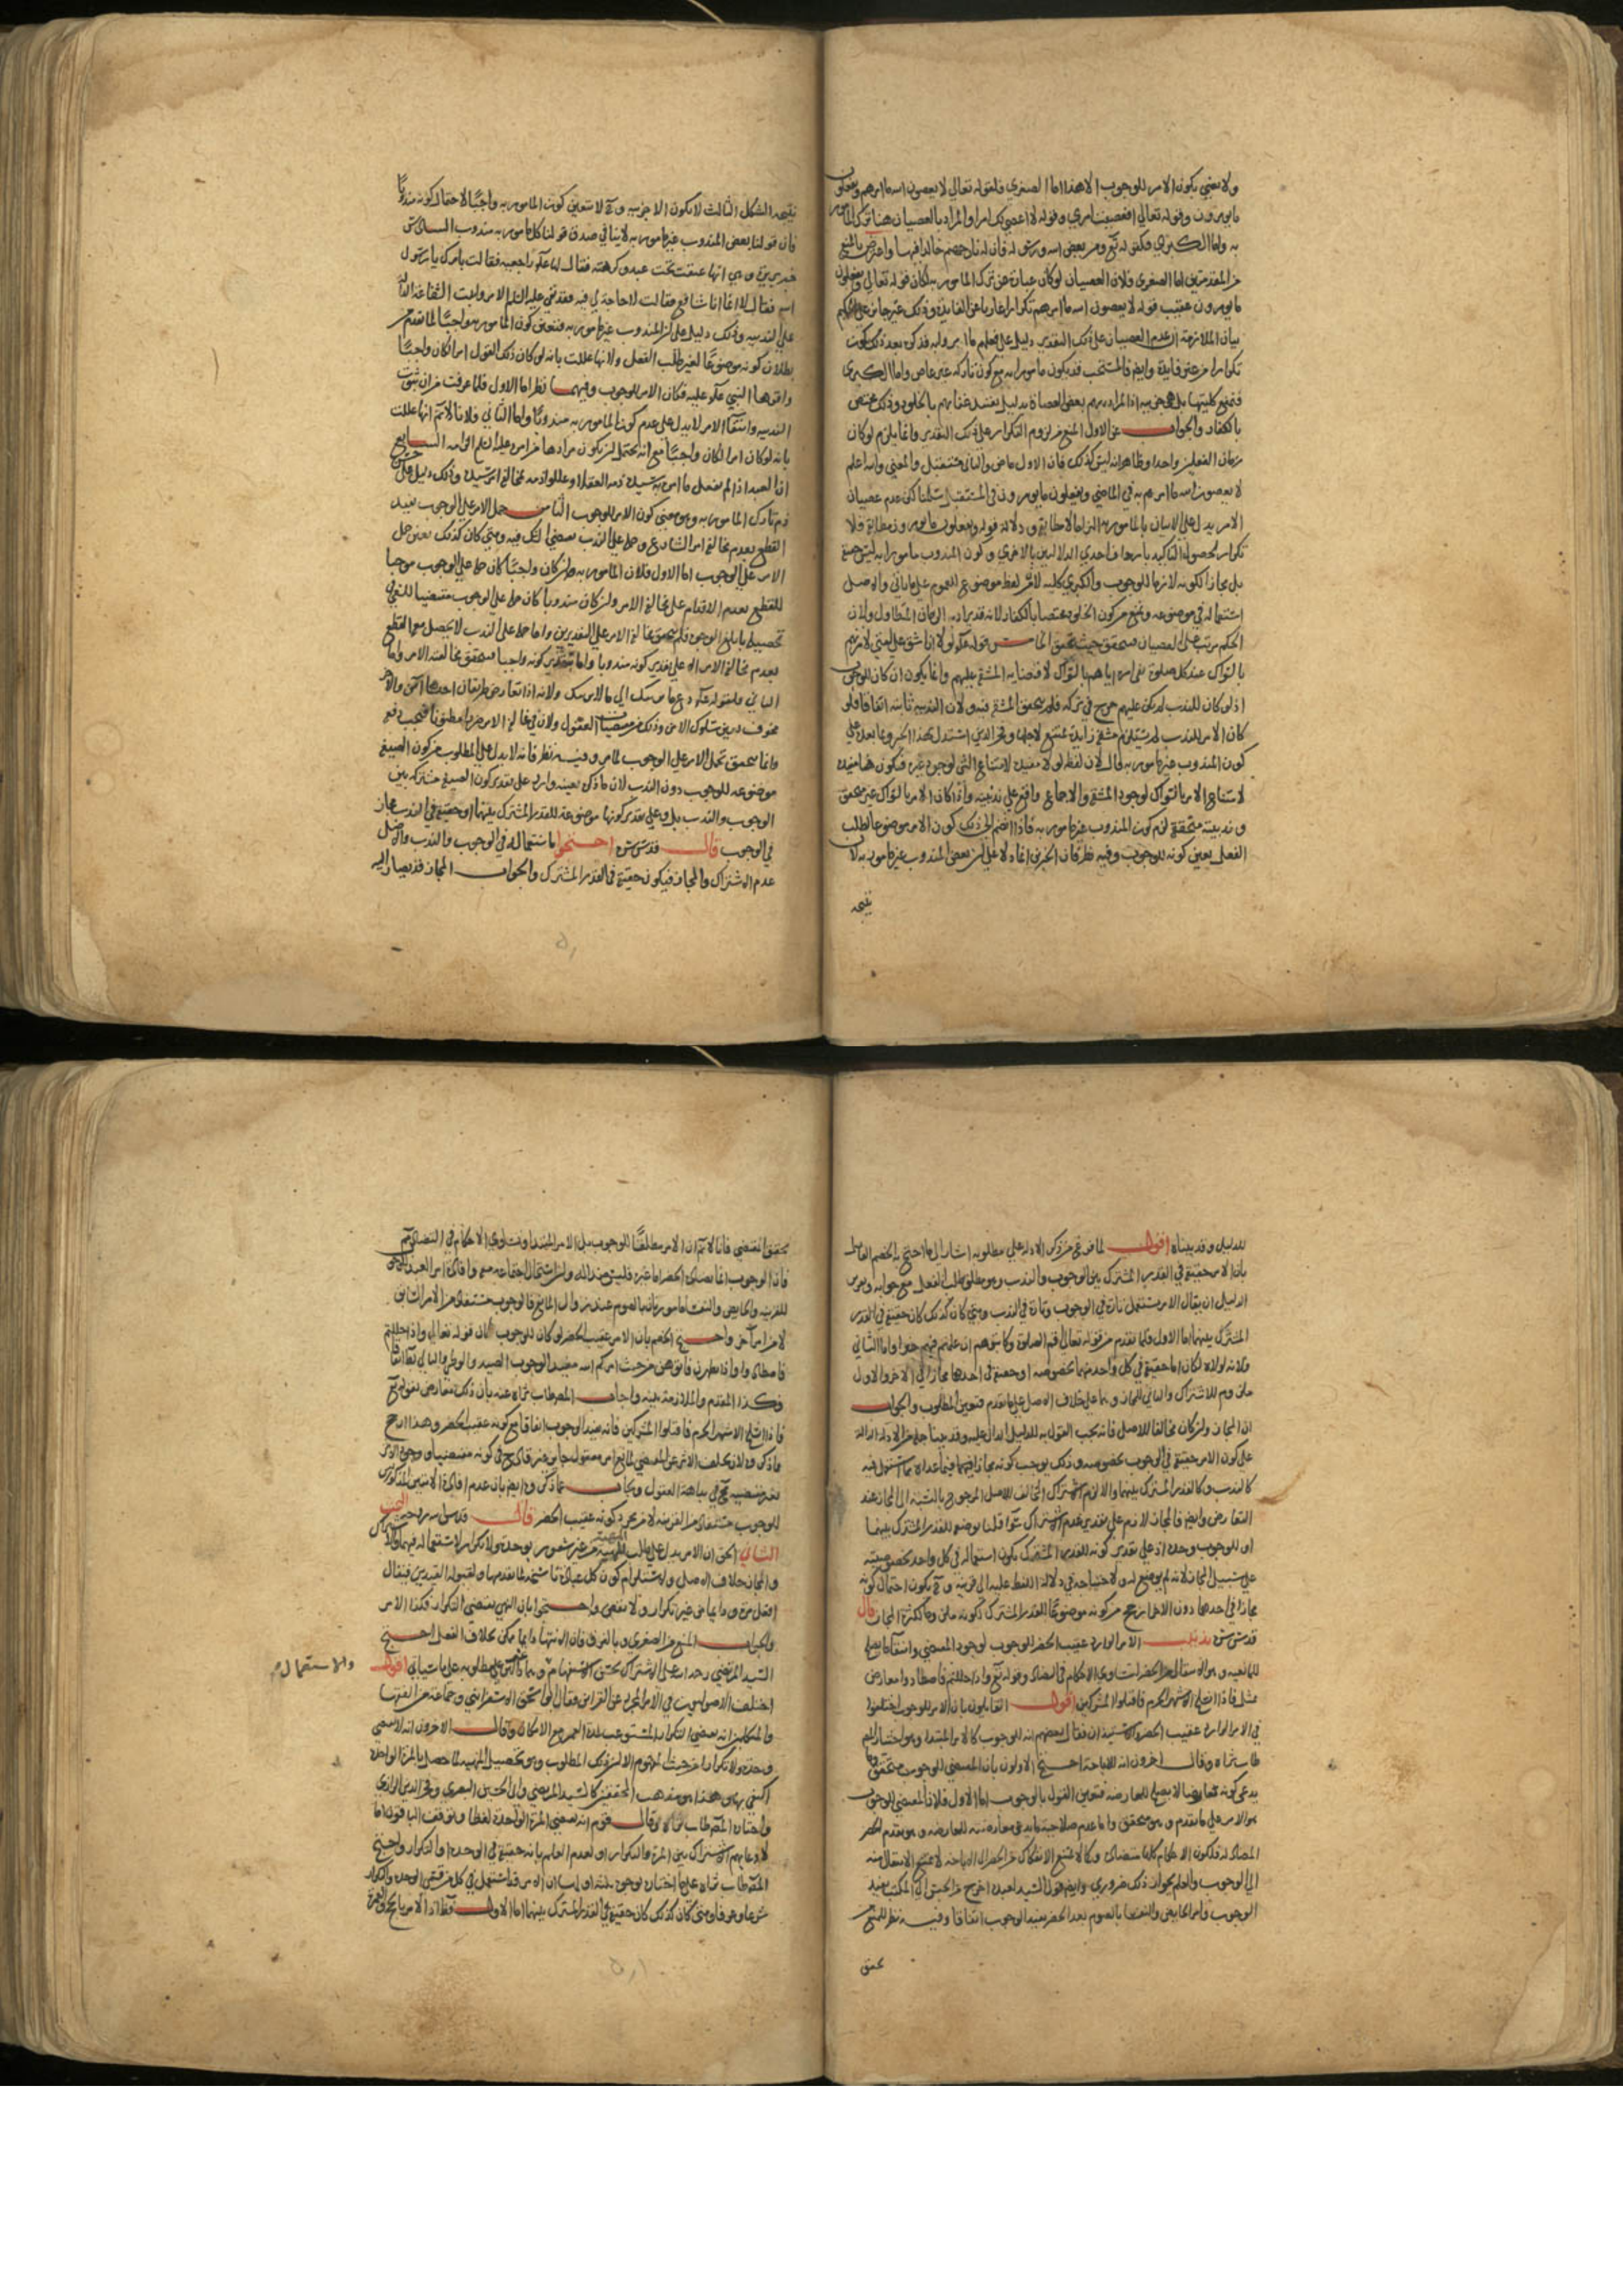 ولا يعني بكون الامر للوجوب الا هذا اما الصغرى فلقوله تعالى لا يعصون الله ما امرهم ويفعلون
ما يؤمرون وقوله تعالى افعصيت امري وقوله لا اعصي لك امرا والمراد بالعصيان هنا ترك المامور
به واما الكبرى فلقوله تع ومن يعص الله ورسوله فان له نار جهنم خالدا فيها واعترض بالمنع
من المقدمتين اما الصغرى فلان العصيان لو كان عبارة عن ترك المامور به لكان قوله تعالى ويفعلون
ما يؤمرون عقيب قوله لا يعصون الله ما امرهم تكرارا عاريا عن الفايدة وذلك غير جايز على الحكيم
بيان الملازمة ان عدم العصيان على ذلك التقدير دليل على فعلهم ما امروا به فذكره بعد ذلك يكون
تكرارا من غير فايدة وايضا فالمستحب قد يكون مامورا به مع كون تاركه غير عاص واما الكبرى
فنمنع كليتها بل هي جزيية اذ المراد بهم بعض العصاة بدليل تخصيص عقابهم بالخلود وذلك مختص
بالكفار والجواب عن الاول المنع من لزوم التكرار على ذلك التقدير وانما يلزم لو كان
زمان الفعلين واحدا وظاهر انه ليس كذلك فان الاول ماض والثاني مستقبل والمعنى والله اعلم
لا يعصون الله ما امرهم به في الماضي ويفعلون ما يؤمرون في المستقبل سلمنا لكن عدم عصيان
الامر يدل على الاتيان بالمامور به التزاما لا مطابقة ودلالة قوله ويفعلون ما يؤمرون مطابقة فلا
تكرار لحصول التاكيد
بل مجازا لكونه لازما للوجوب والكبرى كلية لان من لفظ موضوع للعموم على ما ياتي والاصل
استعماله في موضوعه ونمنع من كون الخلود مختصا بالكفار لانه قد يراد به الزمان المتطاول ولان
الحكم مرتب على العصيان فيتحقق حيث تحقق الخامس قوله عم لولا ان اشق على امتي لامرتهم
بالسواك عند كل صلوة نفى امره اياهم بالسواك لاقتضايه المشقة عليهم وانما يكون ان كان للوجوب
اذ لو كان للندب لم يكن عليهم حرج في تركه فلم يتحقق المشقة فيه ولان الندبية ثابتة اتفاقا فلو
كان الامر للندب لم يستلزم مشقة زايدة يمتنع لاجلها وفخر الدين استدل بهذا الخبر وما بعده على
كون المندوب غير مامور به قال لان لفظ لولا مفيدة لامتناع الشي لوجود غيره فيكون هنا مفيدة
لامتناع الامر بالسواك لوجود المشقة والاجماع واقع على ندبيته واذا كان الامر بالسواك غير متحقق
وندبيته متحققة لزم كون المندوب غير مامور به فاذا انضم الى ذلك كون الامر موضوعا لطلب
الفعل تعين كونه للوجوب وفيه نظر فان الخبرين انما دلا على ان بعض المندوب غير مامور به لان
نتيجة
نتيجة الشكل الثالث لا يكون الا جزيية وح لا يتعين كون المامور به واجبا لاحتمال كونه مندوبا
فان قولنا بعض المندوب غير مامور به لا ينافي صدق قولنا كل مامور به مندوب السادس
خبر بريرة وهي انها عتقت تحت عبد وكرهته فقال لها عم راجعيه فقالت بامرك يا رسول
الله فقال لا انما انا شافع فقالت لا حاجة لي فيه فقد نفى عليه السلام الامر واثبت الشفاعة الدالة
على الندبية وذلك دليل على ان المندوب غير مامور به فتعين كون المامور به واجبا لما تقدم من
بطلان كونه موضوعا لغير طلب الفعل ولانها عللت بانه لو كان ذلك القول امرا لكان واجبا
واقرها النبي عم عليه فكان الامر للوجوب وفيهما نظر اما الاول فلما عرفت من ان ثبوت
الندبية وانتفا الامر لا يدل على عدم كون المامور به مندوبا واما الثاني فلانا لا نم انها عللت
بانه لو كان امرا لكان واجبا مع انه يحتمل ان يكون مرادها السابع
ان العبد اذا لم يفعل ما امره به سيده ذمه العقلا وعللوا ذمه بمخالفة امر سيده وذلك دليل على
ذم تارك المامور به وهو معنى كون الامر للوجوب الثامن حمل الامر على الوجوب يفيد
القطع بعدم مخالفة امر الشارع وحمله على الندب يقتضي الشك فيه ومتى كان كذلك تعين حمل
الامر على الوجوب اما الاول فلان المامور به ان كان واجبا كان حمله على الوجوب موجبا
للقطع بعدم الاقدام على مخالفة الامر وان كان مندوبا كان حمله على الوجوب مقتضيا للسعي في
تحصيله بابلغ الوجوه فلم يتحقق مخالفة الامر على التقديرين واما حمله على الندب لا يحصل معه القطع
بعدم مخالفة الامر الا على تقدير كونه مندوبا واما بتقدير كونه واجبا فيتحقق مخالفة الامر واما
الثاني فلقوله عم دع ما يريبك الى ما لا يريبك ولانه اذا تعارض طريقان احدهما آمن والاخر
مخوف تعين سلوك الآمن وذلك من مقتضيات العقول ولان في مخالفة الامر ضررا مظنونا فيجب دفعه
وانما يتحقق بحمل الامر على الوجوب لما مر وفيه نظر فانه لا يدل على المطلوب من كون الصيغة
موضوعة للوجوب دون الندب لان ما ذكره بعينه وارد على تقدير كون الصيغة مشتركة بين
الوجوب والندب بل وعلى تقدير كونها موضوعة للقدر المشترك بينهما او حقيقة في الندب مجاز
في الوجوب قال قدس سره احتجوا باستعماله في الوجوب والندب والاصل
عدم الاشتراك والمجاز فيكون حقيقة في القدر المشترك والجواب المجاز قد يصار اليه
للدليل وقد بيناه اقول لما فرغ من ذكر الادلة على مطلوبه اشار الى ما احتج به الخصم القايل
بان الامر حقيقة في القدر المشترك بين الوجوب والندب وهو مطلق طلب الفعل مع جوابه وتقرير
الدليل ان يقال الامر يستعمل تارة في الوجوب وتارة في الندب ومتى كان كذلك كان حقيقة في القدر
المشترك بينهما اما الاول فلما تقدم من قوله تعالى اقم الصلوة وكاتبوهم ان علمتم فيهم خيرا واما الثاني
فلانه لولاه لكان اما حقيقة في كل واحد منهما بخصوصه او حقيقة في احدهما مجازا في الاخر والاول
ملزوم للاشتراك والثاني للمجاز وهما على خلاف الاصل على ما تقدم فتعين المطلوب والجواب
ان المجاز وان كان مخالفا للاصل فانه يجب القول به للدليل الدال عليه وقد بينا جملة من الادلة الدالة
على كون الامر حقيقة في الوجوب بخصوصه وذلك يوجب كونه مجازا فيما عداه مما استعمل فيه
كالندب وكالقدر المشترك بينهما والا لزم الاشتراك المخالف للاصل المرجوح بالنسبة الى المجاز عند
التعارض وايضا فالمجاز لازم على تقدير عدم الاشتراك سوا قلنا بوضعه للقدر المشترك بينهما
او للوجوب وحده اذ على تقدير كونه للقدر المشترك يكون استعماله في كل واحد بخصوصيته
على سبيل المجاز لانه لم يوضع له ولاحتياجه في دلالة اللفظ عليه الى قرينة وح يكون احتمال كونه
مجازا في احدهما دون الاخر ارجح من كونه موضوعا للقدر المشترك لكونه ملزوما لكثرة المجاز قال
قدس سره تذنيب الامر الوارد عقيب الحظر للوجوب لوجود المقتضي وانتفا ما يصلح
للمانعية وهو الانتقال من الحظر لتساوي الاحكام في التضاد وقوله تع واذا حللتم فاصطادوا معارض
بمثل فاذا انسلخ الاشهر الحرم فاقتلوا المشركين اقول القايلون بان الامر للوجوب اختلفوا
في الامر الوارد عقيب الحظر والاستيذان فقال بعضهم انه للوجوب كالامر المبتدا وهو اختيار المص
طاب ثراه وقال اخرون انه للاباحة احتج الاولون بان المقتضي للوجوب متحقق وما
يدعى كونه معارضا لا يصلح للمعارضة فتعين القول بالوجوب اما الاول فلان المقتضي للوجوب
هو الامر على ما تقدم وهو متحقق واما عدم صلاحية ما يدعى معارضته للمعارضة وهو تقدم الحظر
المضاد له فلكون الاحكام كلها متضادة وكما لا يمتنع الانتقال من الحظر الى الاباحة لا يمتنع الانتقال منه
الى الوجوب والعلم بجواز ذلك ضروري وايضا قول السيد لعبده اخرج من الحبس الى المكتب يفيد
الوجوب وامر الحايض والنفسا بالصوم بعد الحظر يفيد الوجوب اتفاقا وفيه نظر للمنع من
تحقق
تحقق المقتضي فانا لا نم ان الامر مطلقا للوجوب بل الامر المبتدا وتساوي الاحكام في التضاد مم
فان الوجوب
للقرينة والحايض والنفسا مامورتان بالصوم عند زوال المانع فالوجوب مستفاد من الامر السابق
لا من امر آخر واحتج الخصم بان الامر عقيب الحظر لو كان للوجوب لكان قوله تعالى واذا حللتم
فاصطادوا واذا تطهرن فاتوهن من حيث امركم الله مفيدا لوجوب الصيد والوطي والتالي بط اتفاقا
فكذا المقدم والملازمة بينة واجاب المص طاب ثراه عنه بان ذلك معارض بقوله تع
فاذا انسلخ الاشهر الحرم فاقتلوا المشركين فانه يفيد الوجوب اتفاقا مع كونه عقيب الحظر وهذا ارجح
مما ذكره لان تخلف الاثر عن المقتضي لمانع امر معقول جايز غير قادح في كونه مقتضيا ووجود الاثر
بغير مقتضيه مح في بداهة العقول ويجاب عما ذكره ايضا بان عدم افادة الايتين المذكورتين
للوجوب مستفاد من القرينة لا من مجرد كونه عقيب الحظر قال قدس سره البحث
الثاني الحق ان الامر يدل على طلب الماهية من غير شعور بوحدة ولا تكرار لاستعماله فيهما والاشتراك
والمجاز خلاف الاصل ولاستلزام كون كل عبادة ناسخة لما تقدمها ولقبوله القيدين فيقال
افعل مرة ودايما من غير تكرار ولا نقض واحتجوا بان النهي يقتضي التكرار فكذا الامر
والجواب المنع من الصغرى وبالفرق فان الانتهاء دايما ممكن بخلاف الفعل احتج
السيد المرتضى رحمه الله على الاشتراك بحسن الاستفهام على مطلوبه على ما سياتي اقول
والاستعمال
اختلف الاصوليون في الامر المجرد عن القراين فقال ابو اسحق الاسفرايني وجماعة من الفقها
والمتكلمين انه يقتضي التكرار المستوعب لمدة العمر مع الامكان وقال الاخرون انه لا يقتضي
وحدة ولا تكرارا من حيث المفهوم الا ان ذلك المطلوب وهو تحصيل الماهية لما حصل بالمرة الواحدة
اكتفي بها وهذا هو مذهب المحققين كالسيد المرتضى وابي الحسين البصري وفخر الدين الرازي
واختاره المص طاب ثراه وقال قوم انه يقتضي المرة الواحدة لفظا وتوقف الباقون اما
لادعايهم الاشتراك بين المرة والتكرار او لعدم العلم بانه حقيقة في الوحدة او التكرار واحتج
المص طاب ثراه على ما اختاره بوجوه ثلثة اولها ان الامر قد استعمل في كل من قسمي الوحدة والتكرار
شرعا وعرفا ومتى كان كذلك كان حقيقة في القدر المشترك بينهما اما الاول فظ اذ الامر بالحج والعمرة